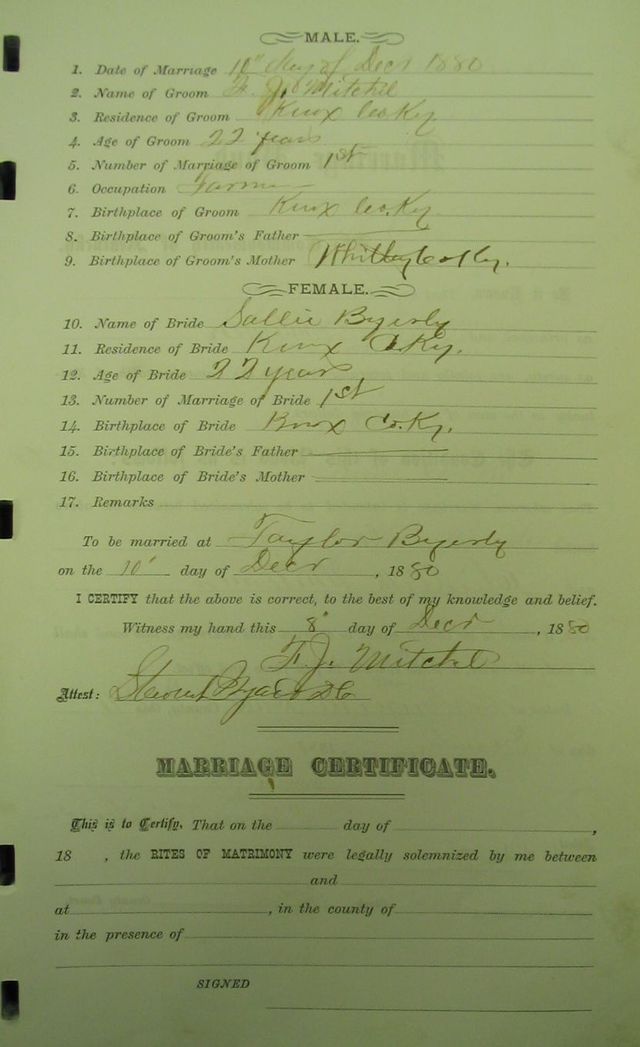 MALE.
1. Date of Marriage 10" day of Decr 1880
2. Name of Groom F. J. Mitchel
3. Residence of Groom Knox Co Ky
4. Age of Groom 22 years
5. Number of Marriage of Groom 1st
6. Occupation Farmer
7. Birthplace of Groom Knox Co. Ky
8. Birthplace of Groom's Father
9. Birthplace of Groom's Mother Whitley Co Ky.
FEMALE.
10. Name of Bride Sallie Byerly
11. Residence of Bride Knox Co Ky.
12. Age of Bride 22 years
13. Number of Marriage of Bride 1st
14. Birthplace of Bride Knox Co. Ky.
15. Birthplace of Bride's Father
16. Birthplace of Bride's Mother
17. Remarks
To be married at Taylor Byerly
on the 10" day of Decr, 1880
I CERTIFY that the above is correct, to the best of my knowledge and belief.
Witness my hand this 8" day of Decr, 1880
F. J. Mitchel
Attest:
MARRIAGE CERTIFICATE.
This is to Certify, That on the day of ,
18 , the RITES OF MATRIMONY were legally solemnized by me between
and
at , in the county of
in the presence of
SIGNED